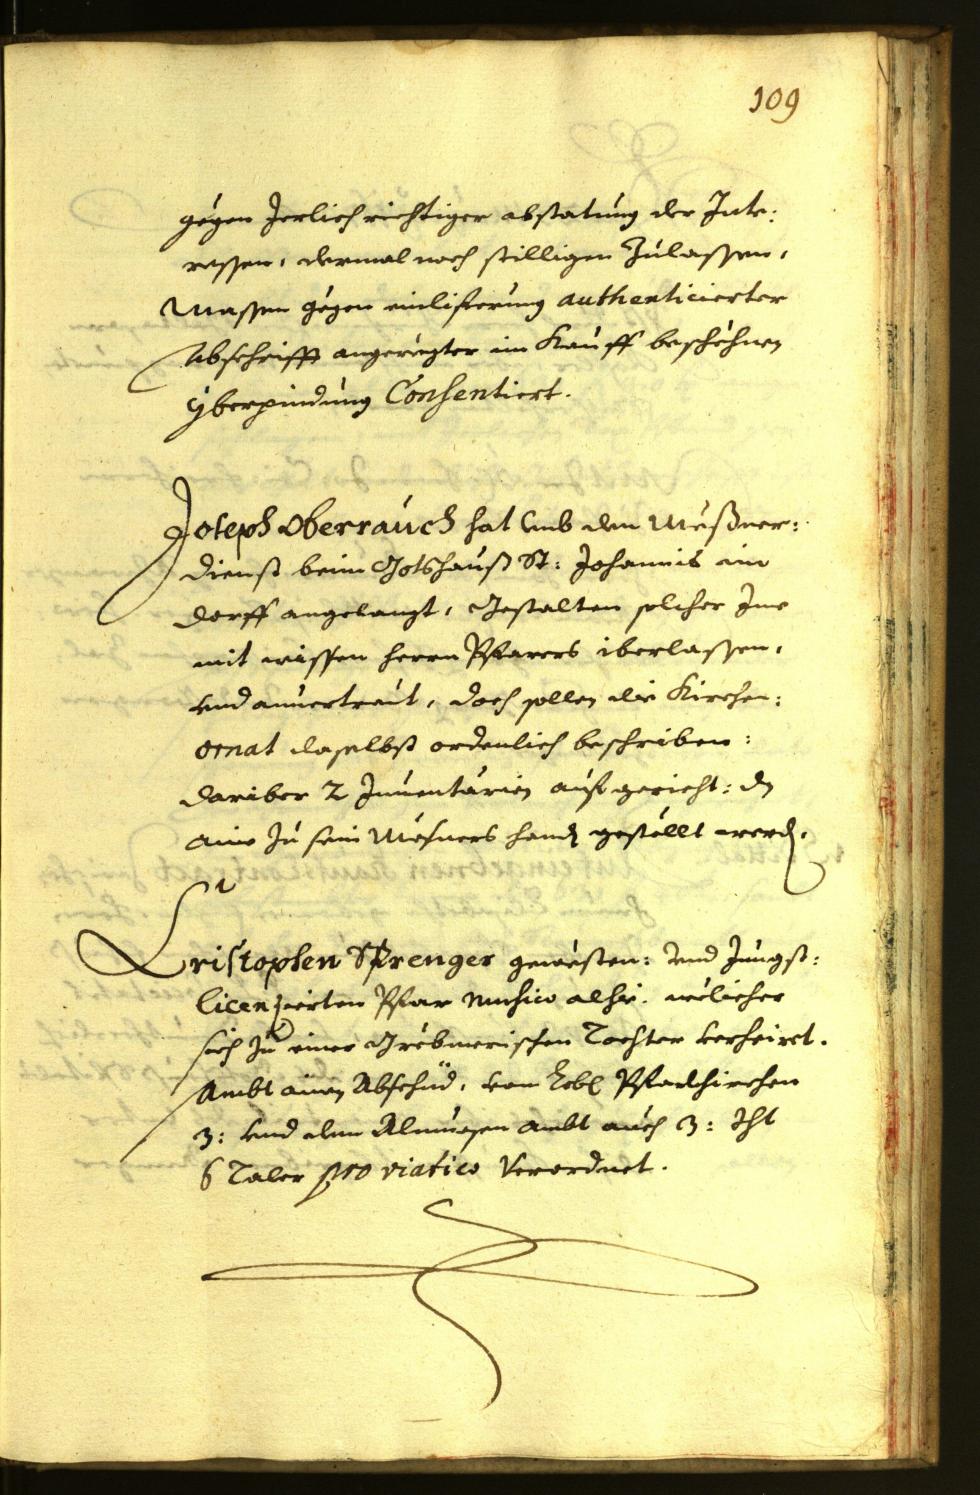 109
gegen Jerlich richtiger abstatung der Inte:
ressen, dermal noch stilligen Zulassen,
Massen gegen einliferung authenticierter
Abschrifft angeregter im Kauff beschehnen
yberpindung Consentiert.
Joseph Oberrauch hat umb den Meßner:
dienst beim Gotshauß St: Johannis im
dorff angelangt, Gestalten solcher Ime
mit wissen herrn Pfarers iberlassen,
vnd anuertraut, doch sollen die Kirchen:
ornat daselbst ordenlich beschriben:
dariber 2 Inuentarien auf gericht: dz
aine zu sein Mesners handen gestellt werden.
Cristophen Sprenger gewesten: vnd Jungst:
licenzierten Pfar Musico alhie. welicher
sich zu einer Grebmerischen Tochter verheiret.
Ambt Abschid, vom Lobl Pfarkhirchen
3: vnd dem Almuesen ambt auch 3: Tht
6 Taler pro viatico Verordnet.